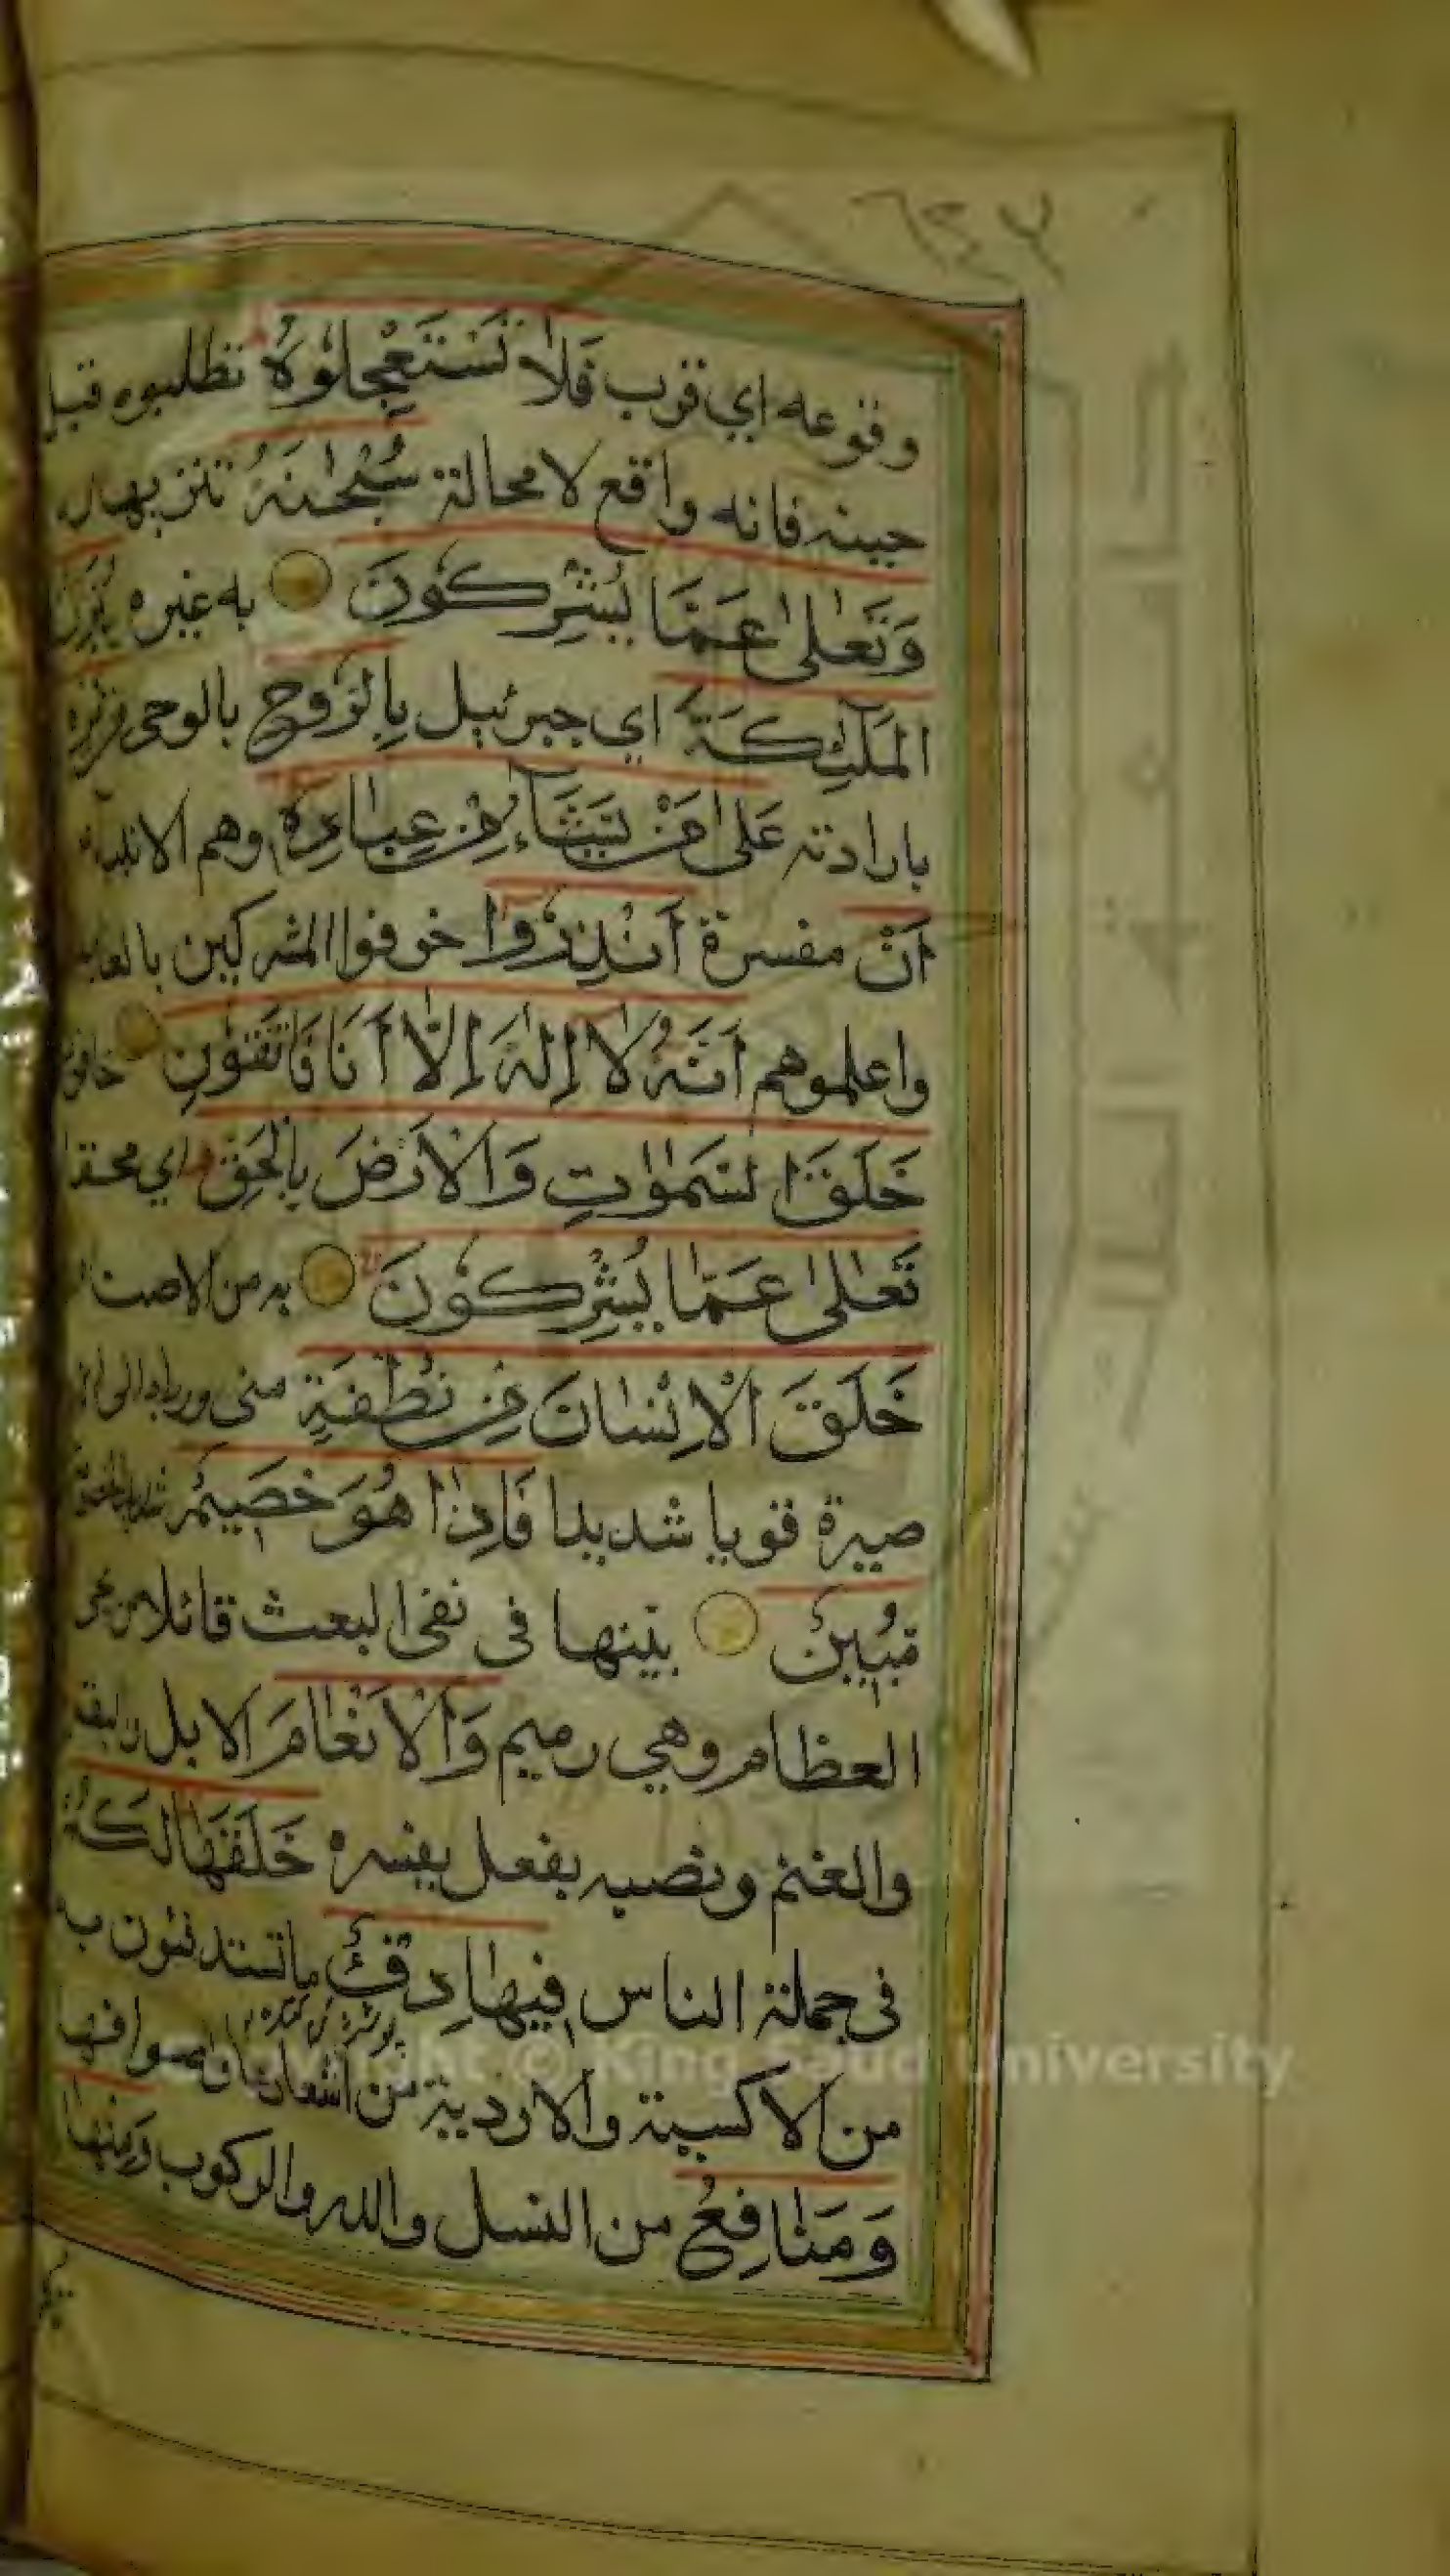 ٦٤٧
وقوعه اي قرب فَلَا تَسْتَعْجِلُوهُ تطلبوه قبل
حينه فانه واقع لا محالة سُبْحٰنَهُ تنزيها له
وَتَعٰلىٰ عَمَّا يُشْرِكُونَ به غيره يُنَزِّلُ
الْمَلٰٓئِكَةَ اي جبرئيل بِالرُّوحِ بالوحي
بارادته عَلىٰ مَنْ يَشَآءُ مِنْ عِبَادِهٖ وهم الانبياء
اَنْ مفسرة اَنْذِرُوا خوفوا المشركين بالعذاب
واعلموهم اَنَّهُ لَا اِلٰهَ اِلَّا اَنَا فَاتَّقُونِ خافون
خَلَقَ السَّمٰوٰتِ وَالْاَرْضَ بِالْحَقِّ اي محقا
تَعٰلىٰ عَمَّا يُشْرِكُونَ به من الاصنام
خَلَقَ الْاِنْسَانَ مِنْ نُطْفَةٍ مني ورباه الى ان
صيره قويا شديدا فَاِذَا هُوَ خَصِيمٌ شديد الخصومة
مُبِينٌ بينها في نفي البعث قائلا من يحي
العظام وهي رميم وَالْاَنْعَامَ الابل والبقر
والغنم ونصبه بفعل يفسره خَلَقَهَا لَكُمْ
في جملة الناس فِيهَا دِفْءٌ ما تستدفئون به
من الاكسية والاردية من اشعارها واصوافها
وَمَنَافِعُ من النسل والدر والركوب وَمِنْهَا
Copyright © King Saud University